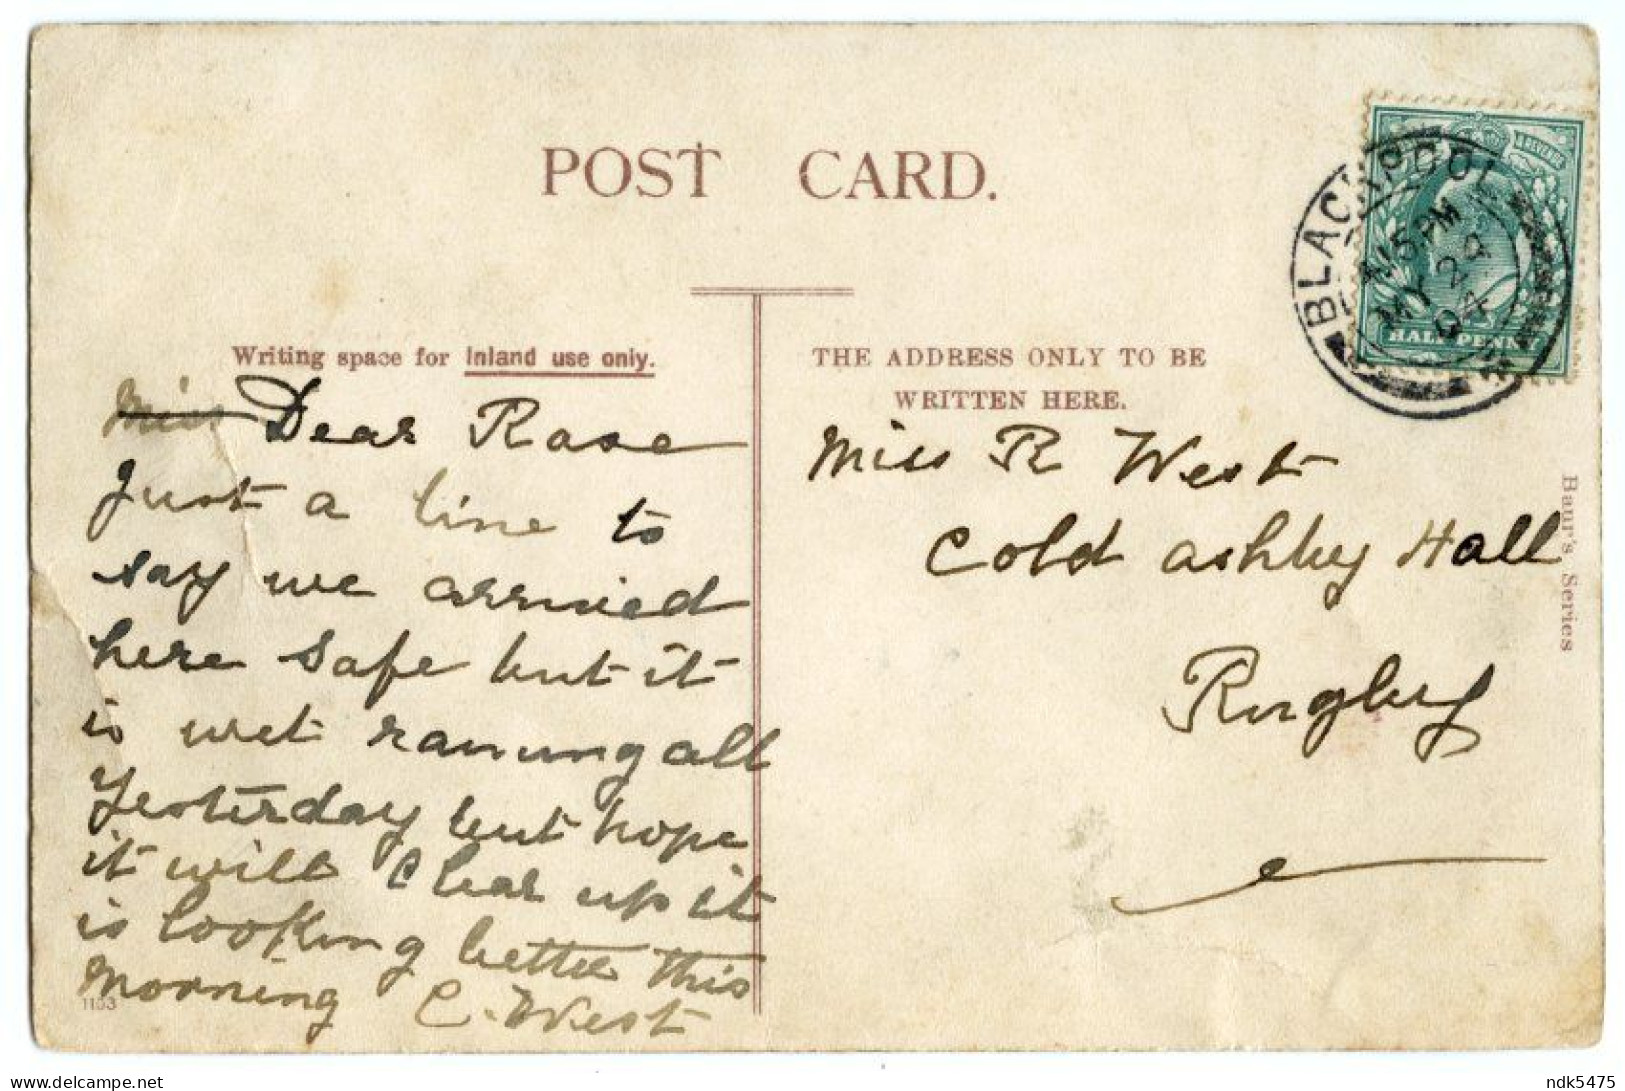 POST CARD.
Writing space for Inland use only.
Miss Dear Rose
Just a line to
say we arrived
here safe but it
is wet raining all
Yesterday but hope
it will clear up it
is looking better this
Morning C. West
1153
THE ADDRESS ONLY TO BE
WRITTEN HERE.
Miss R West
Cold ashby Hall
Rugby
BLACKPOOL
MY 24
04
HALFPENNY
Baur's Series
delcampe.net
ndk5475